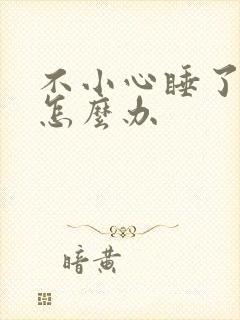 不小心睡了
怎麼办
暗黄